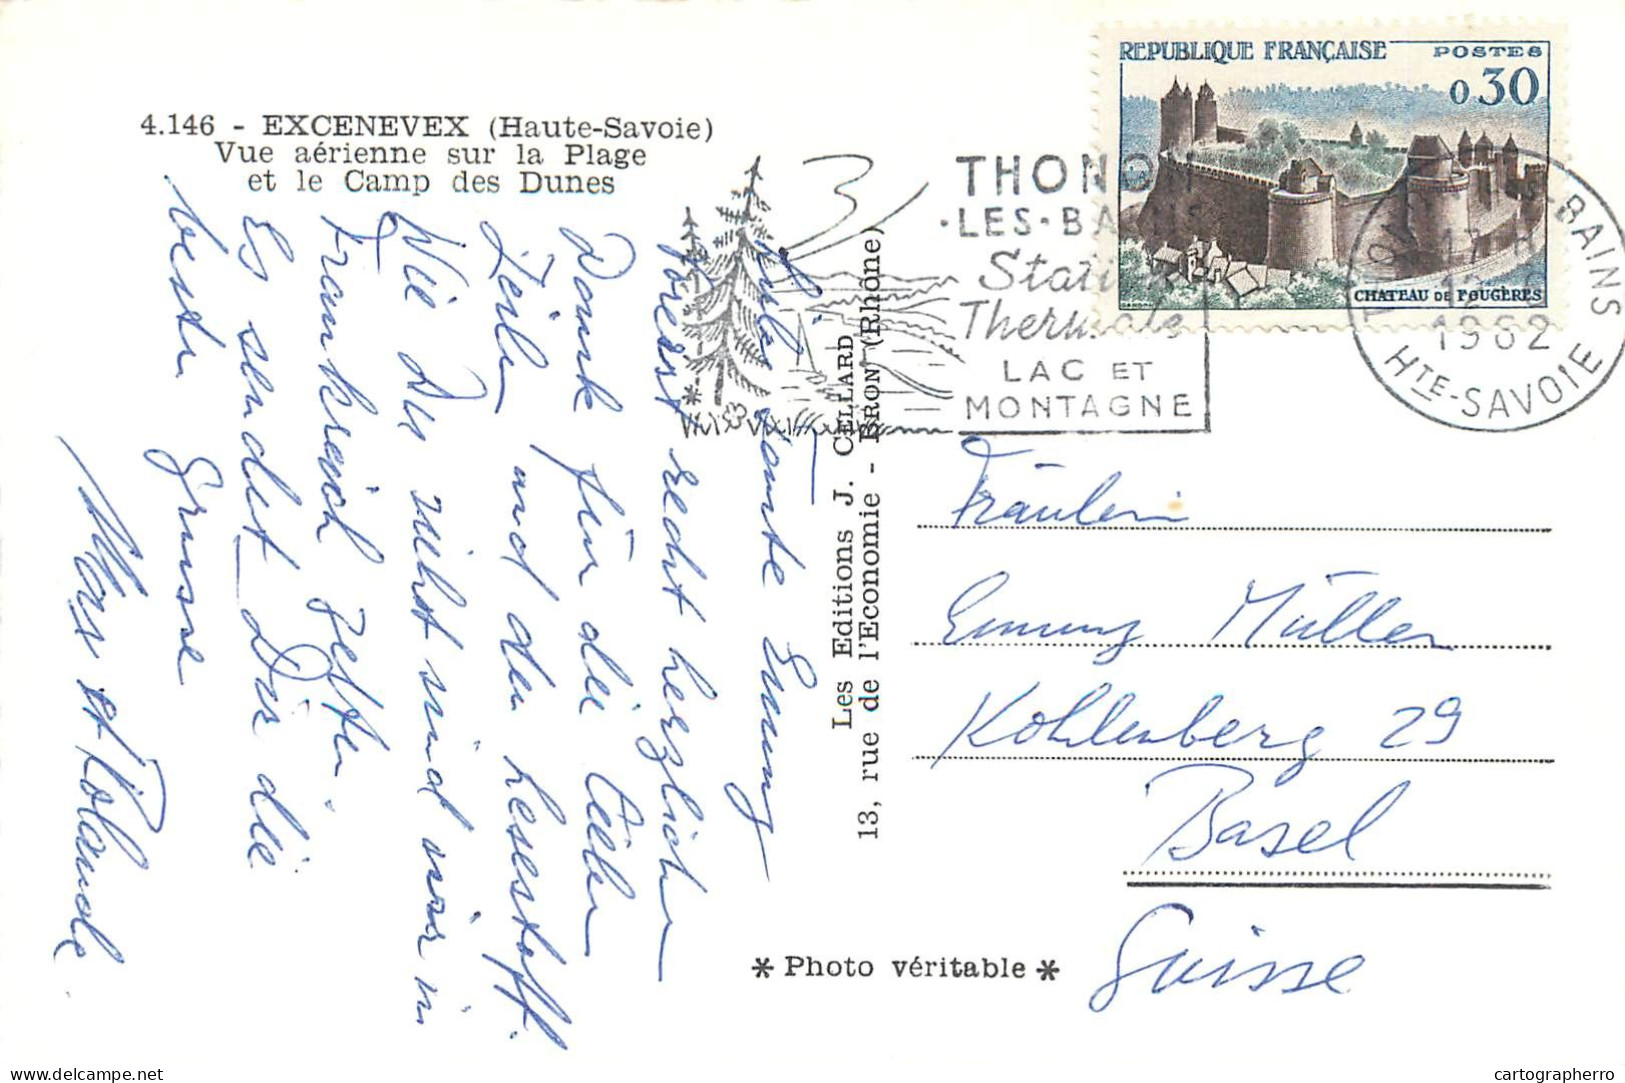 4.146 - EXCENEVEX (Haute-Savoie)
Vue aérienne sur la Plage
et le Camp des Dunes
REPUBLIQUE FRANÇAISE POSTES
0,30
CHATEAU DE FOUGÈRES
THONON
·LES·BAINS
Station
Thermale
LAC ET
MONTAGNE
THONON-LES-BAINS
17 H
12
1962
HTE-SAVOIE
3
Liebe Tante Emmy
Vorerst recht herzlichen
Dank für die lieben
Zeilen und den Lesestoff.
Wie Du siehst sind wir in
Frankreich zelten.
Es sendet Dir die
besten Grüsse
Max et Rolande
Les Editions J. CELLARD
13, rue de l'Economie - BRON (Rhône)
Fräulein
Emmy Müller
Kohlenberg 29
Basel
Suisse
* Photo véritable *
cartographerro